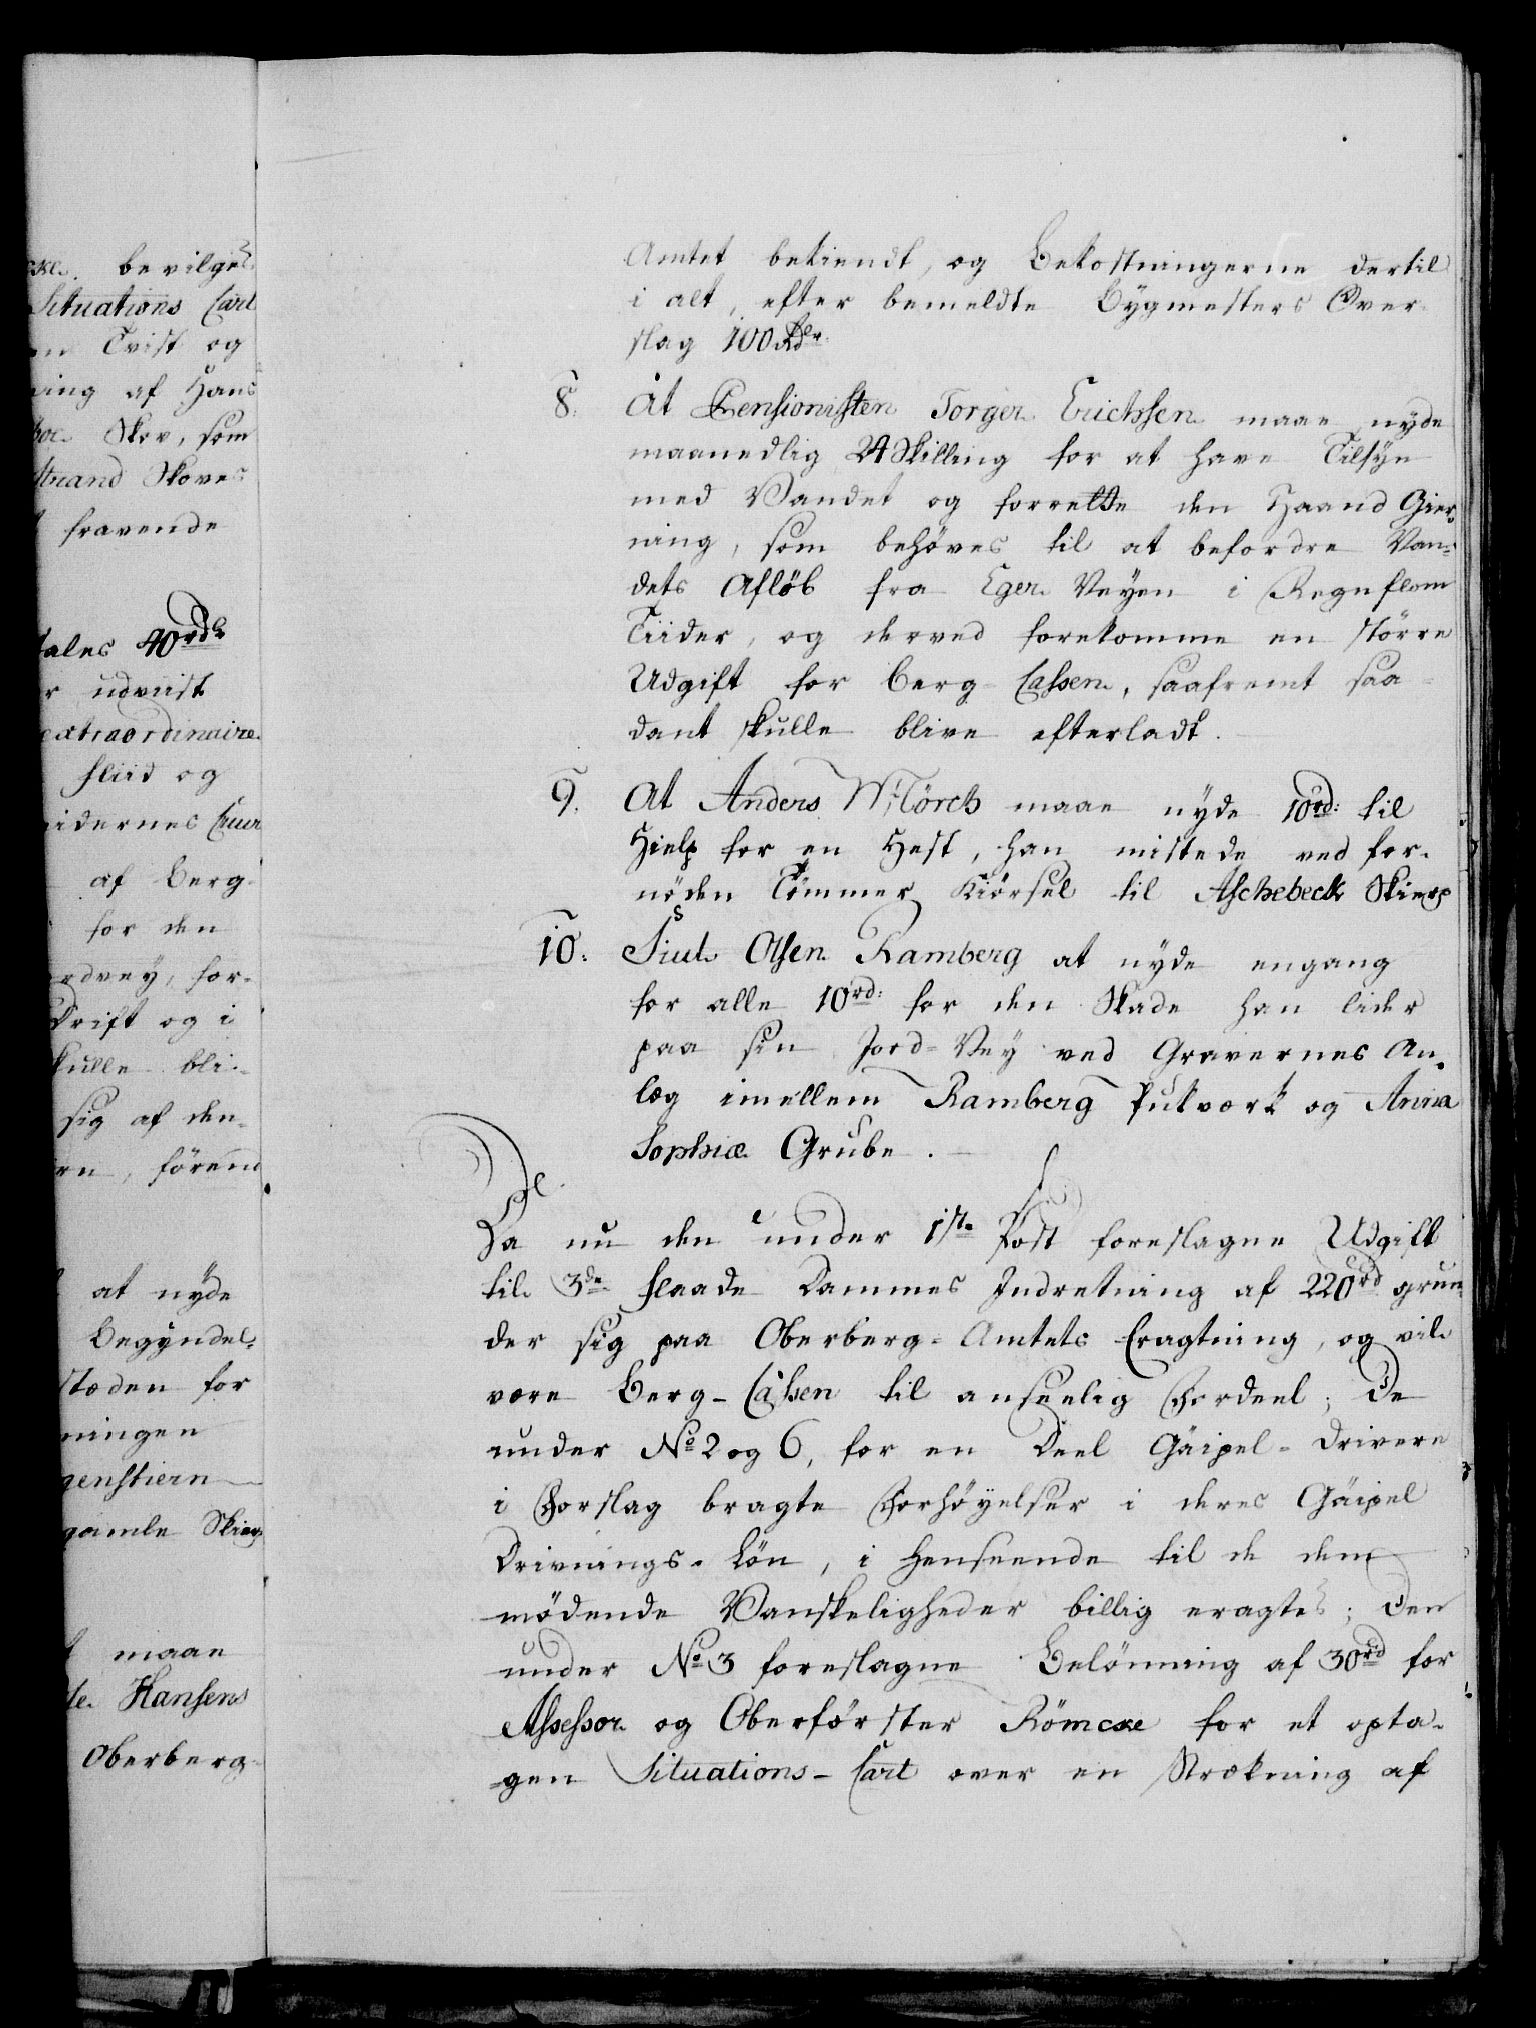 ckl. bevilges
Situations Cart
en Tvist og
ning af Hans
Skov, som
Strand Skoves
fravende
tales 40 rdl
r udviist
extraordinaire
Fliid og
eidernes Cuur
af Berg-
for den
ordvey, for-
Drift og i
skulle bli-
sig af den-
rn, förend
at nyde
Begyndel-
stæden for
ningen
genstiern
gamle Skierp
maae
Hansens
Oberberg-
Amtet bekiendt, og Bekostningerne dertil
i alt, efter bemeldte Bygmesters Over-
slag 100 Rdlr.
8. At Pensionisten Torger Erichsen maae nyde
maanedlig 24 Skilling for at have Tilsyn
med Vandet og forrette den Haand Gier-
ning, som behöves til at befordre Van-
dets Aflöb fra Eger Veyen i Regnflom
Tiider, og derved forekomme en större
Udgift for Berg-Cassen, saafremt saa-
dant skulle blive efterladt.
9. At Anders Mörch maae nyde 10 rd: til
Hielp for en Hest, han mistede ved for-
nöden Tömmer Kiörsel til Aschebeck Skierp
10. Siul Olsen Ramberg at nyde engang
for alle 10 rd: for den Skade han lider
paa sin Jord-Vey ved Gravernes An-
læg imellem Ramberg Pukværk og Anna
Sophiæ Grube.
Da nu den under 1ste Post foreslagne Udgift
til 3de Flaade Dammes Indretning af 220 rd grun-
der sig paa Oberberg-Amtets Eragtning, og vil
være Berg-Cassen til anseelig Fordeel; de
under No 2 og 6, for en Deel Gäipel-Drivere
i Forslag bragte Forhöyelser i deres Gäipel
Drivnings-Lön, i Henseende til de dem
mödende Vanskeligheder billig eragtes; den
under No 3 foreslagne Belönning af 30 rd for
Assessor og Oberförster Römcke for et opta-
gen Situations-Cart over en Strækning af